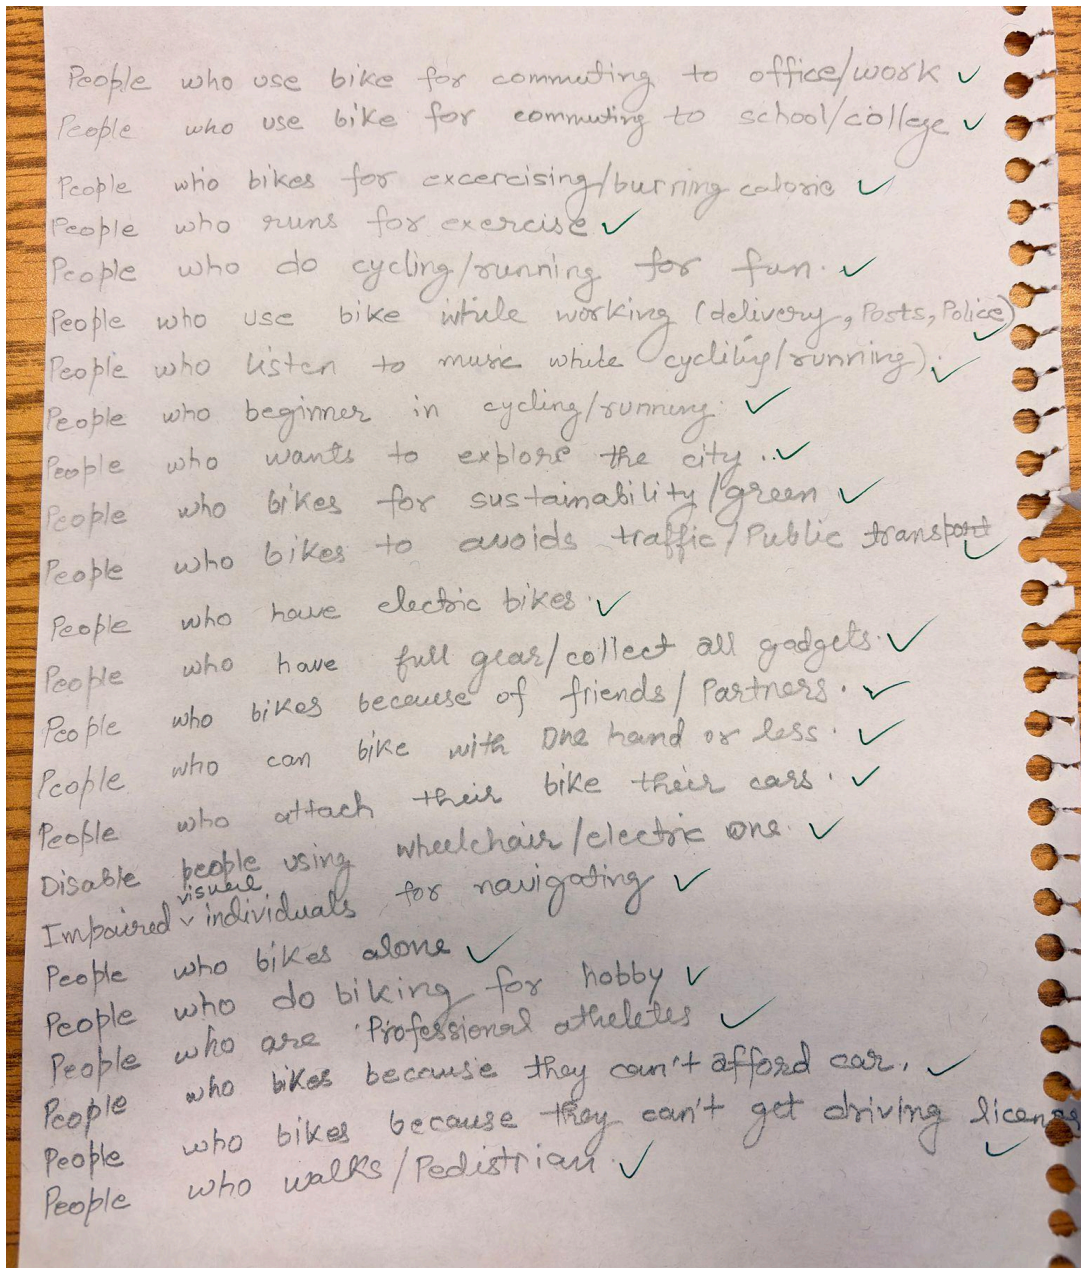 People who use bike for commuting to office/work ✓
People who use bike for commuting to school/college ✓
People who bikes for excercising/burning calorie ✓
People who runs for exercise ✓
People who do cycling/running for fun. ✓
People who use bike while working (delivery, Posts, Police) ✓
People who listen to music while cycliling/running). ✓
People who beginner in cycling/running. ✓
People who wants to explore the city .. ✓
People who bikes for sustainability/green ✓
People who bikes to avoids traffic/Public transport ✓
People who have electric bikes. ✓
People who have full gear/collect all gadgets. ✓
People who bikes because of friends/Partners. ✓
People who can bike with one hand or less. ✓
People who attach their bike their cars. ✓
Disable people using wheelchair/electric one. ✓
Impaired visual individuals for navigating ✓
People who bikes alone ✓
People who do biking for hobby ✓
People who are Professional atheletes ✓
People who bikes because they can't afford car. ✓
People who bikes because they can't get driving license ✓
People who walks/Pedistrian. ✓